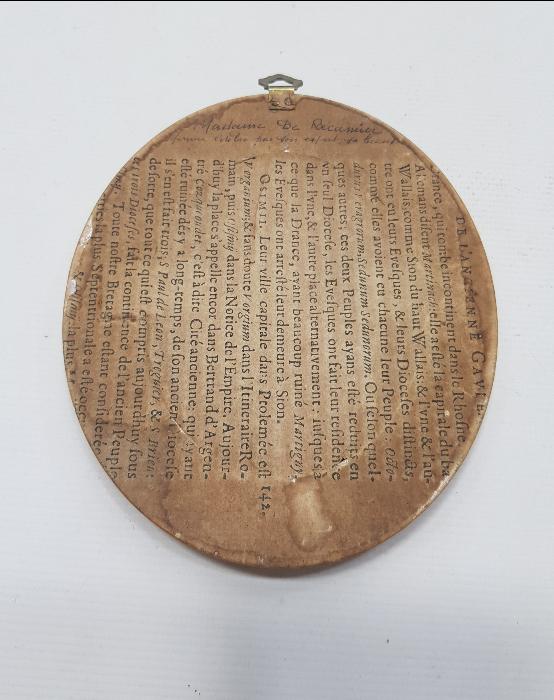 Madame De Recamier
DE L'ANCIENNE GAVLE.
Drance, qui tombe incontinent dans le Rhosne.
Alemans disent Martenach: elle a esté la capitale du bas
Wallais, comme Sion du haut Wallais; & l'vne & l'au-
tre ont eu leurs Evesques, & leurs Dioceses distincts,
comme elles avoient eu chacune leur Peuple: Octo-
durus Veragrorum, Sedunum Sedunorum. Ou selon quel-
ques autres; ces deux Peuples ayans esté reduits en
vn seul Diocese, les Evesques ont fait leur residence
dans l'vne, & l'autre place alternativement: jusques à
ce que la Drance, ayant beaucoup ruiné Martigny
les Evesques ont arresté leur demeure à Sion.
OSIMII. Leur ville capitale dans Ptolemée est 142.
Vorganium; & sans doute Vorgium dans l'Itineraire Ro-
main, puis Osismij dans la Notice de l'Empire. Aujour-
d'huy la place s'appelle encor dans Bertrand d'Argen-
tré Coz-quioudet, c'est à dire Cité ancienne: qui ayant
esté ruinée dés y a long-temps, de son ancien Diocese
il s'en est fait trois, S. Paul de Leon, Treguier, & S. Brieu:
de sorte, que tout ce qui est compris aujourd'huy sous
ces trois Dioceses, fait la continence de l'ancien Peuple
Toute nostre Bretagne estant considerée
la plus Septentrionale a esté
la plus